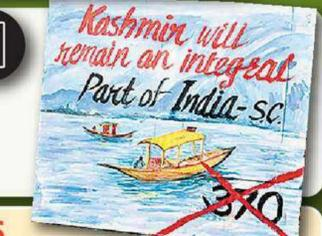 Kashmir will
remain an integral
Part of India-sc
370